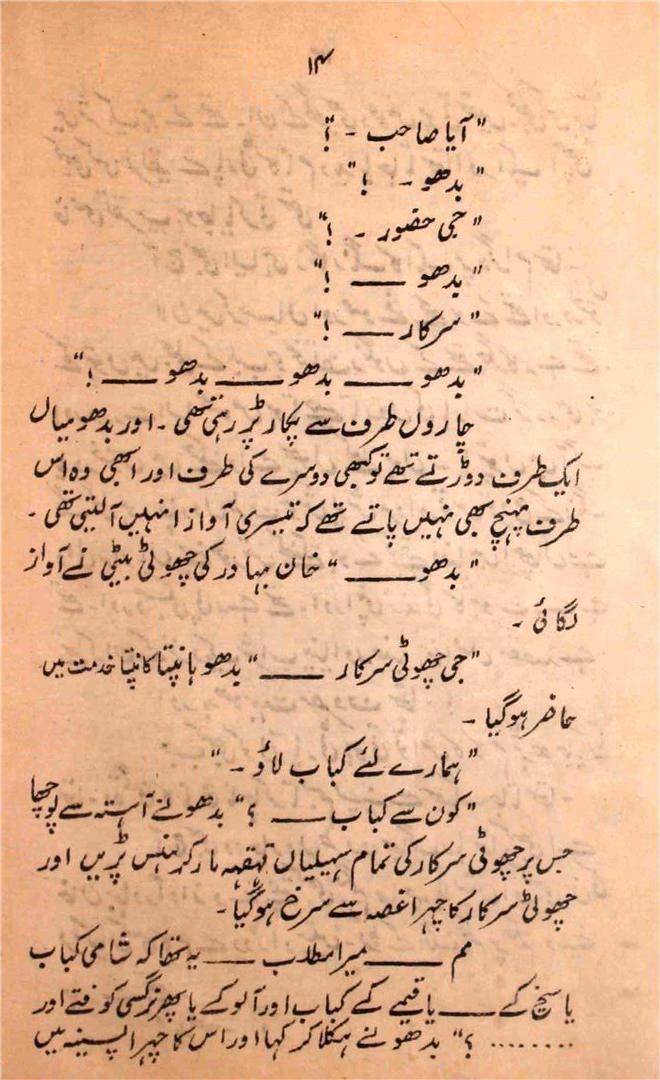 ۱۴
"آیا صاحب - ؟"
"بدھو - ! "
"جی حضور - ! "
"بدھو ـــــ ! "
"سرکار ـــــ ! "
"بدھو ـــــ بدھو ـــــ بدھو ـــــ ! "
چاروں طرف سے پکار پڑ رہی تھی ۔ اور بدھو میاں
ایک طرف دوڑتے تھے تو کبھی دوسرے کی طرف اور ابھی وہ اس
طرف پہنچ بھی نہیں پاتے تھے کہ تیسری آواز انہیں آ لیتی تھی ۔
"بدھو ـــــ " خان بہادر کی چھوٹی بیٹی نے آواز
لگائی ۔
"جی چھوٹی سرکار ـــــ " بدھو ہانپتا کانپتا خدمت میں
حاضر ہو گیا ۔
"ہمارے لئے کباب لاؤ - "
"کون سے کباب ـــــ ؟ " بدھو نے آہستہ سے پوچھا
جس پر چھوٹی سرکار کی تمام سہیلیاں قہقہہ مار کر ہنس پڑیں اور
چھوٹی سرکار کا چہرا غصہ سے سرخ ہو گیا ۔
مم ـــــ میرا مطلاب ـــــ یہ تھا کہ شامی کباب
یا سیخ کے ـــــ یا قیمے کے کباب اور آلو کے یا پھر نرگسی کوفتے اور
........ ؟ " بدھو نے ہکلا کر کہا اور اس کا چہرا پسینہ میں